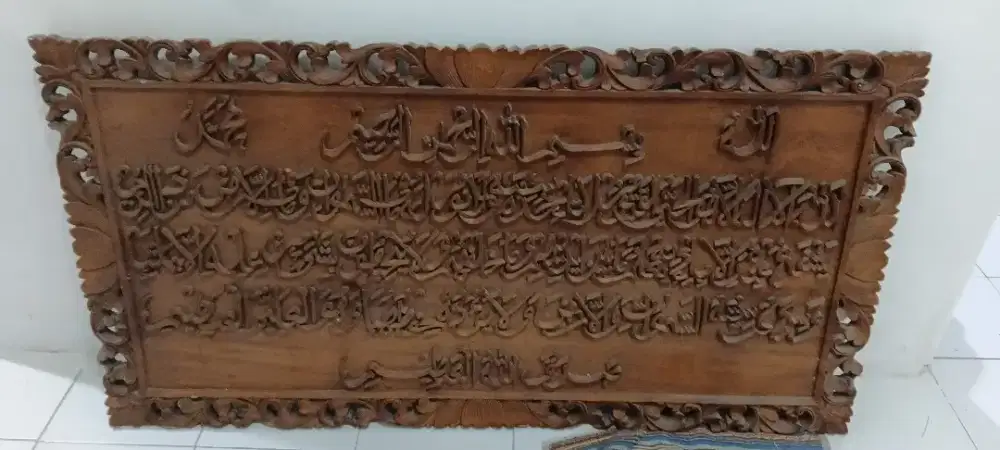 الله بسم الله الرحمن الرحيم محمد
الله لا إله إلا هو الحي القيوم لا تأخذه سنة ولا نوم له ما في السموات وما في الأرض من ذا الذي
يشفع عنده إلا بإذنه يعلم ما بين أيديهم وما خلفهم ولا يحيطون بشيء من علمه إلا بما شاء
وسع كرسيه السموات والأرض ولا يؤده حفظهما وهو العلي العظيم
صدق الله العظيم